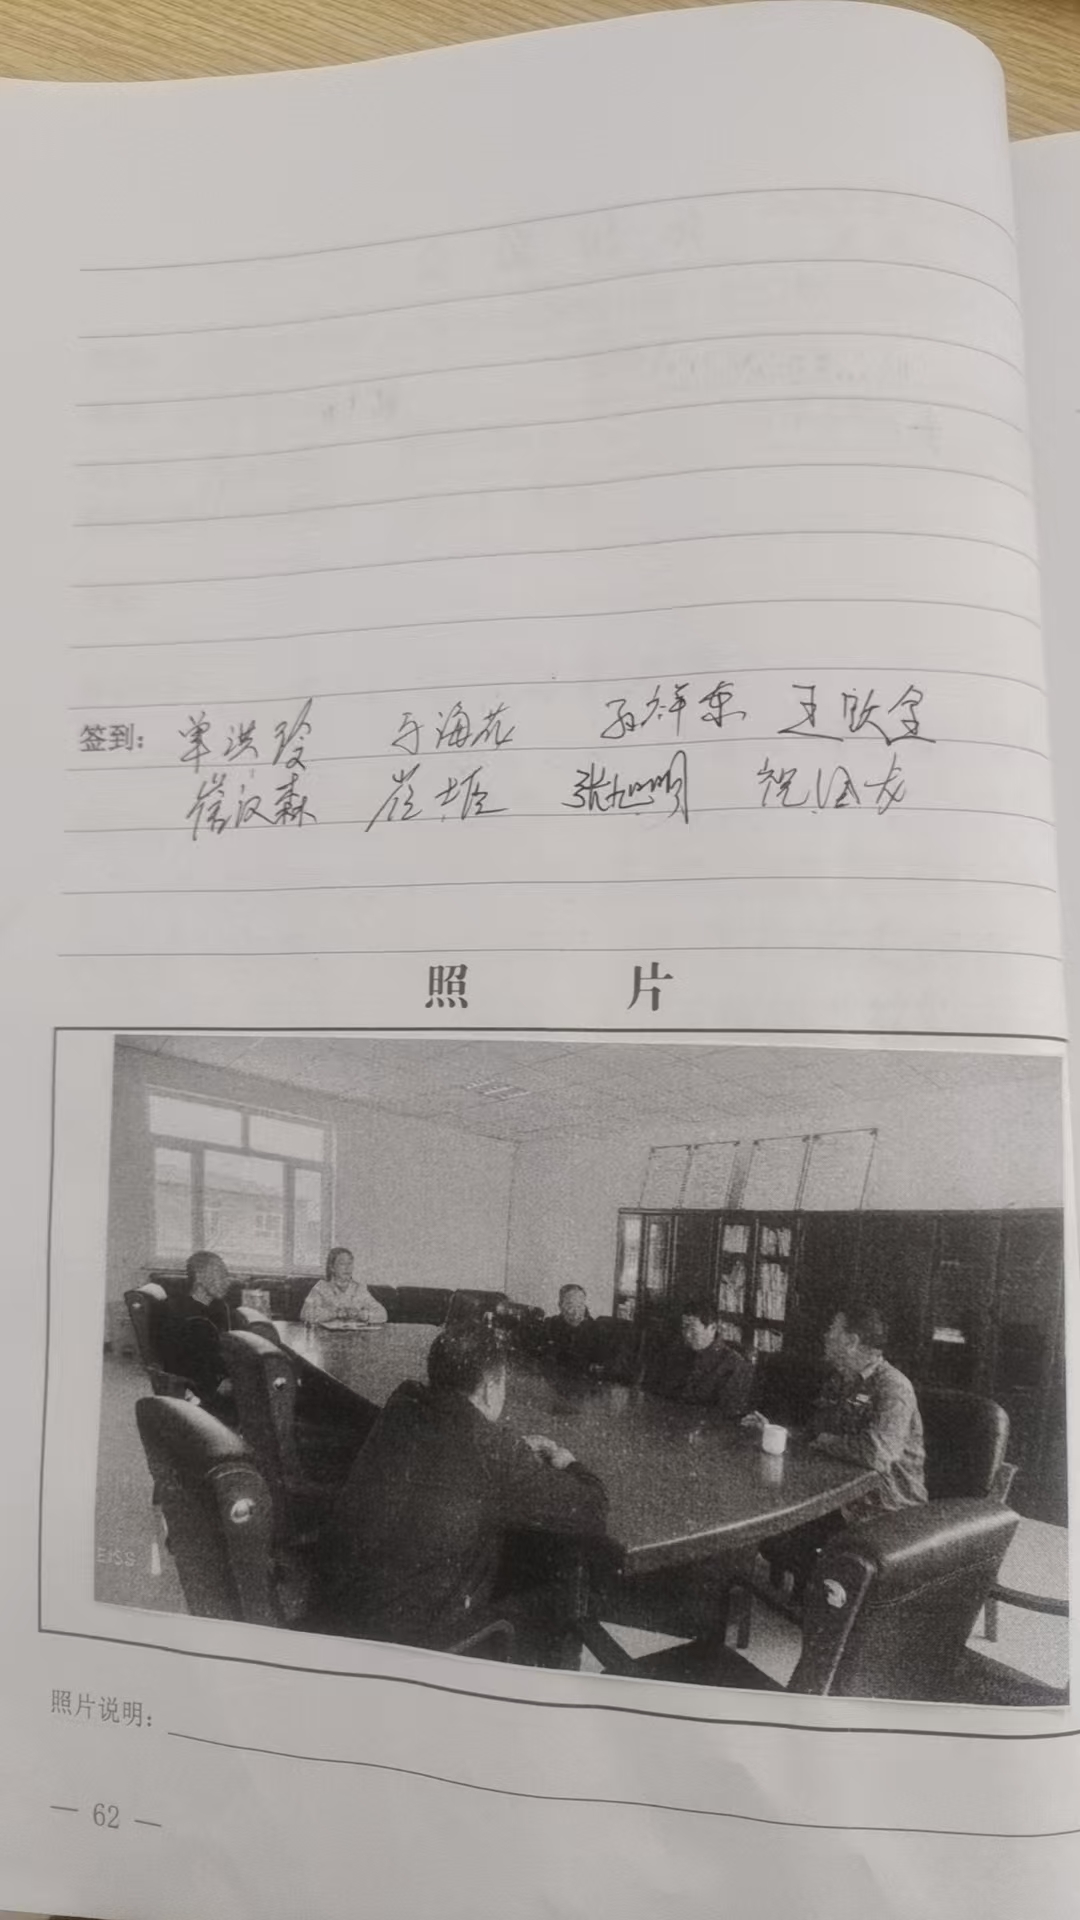 签到: 单洪玲 于海花 孙祥东 王欣宝
崔汉森 崔 张旭明 祝国友
照 片
EISS
照片说明:
— 62 —